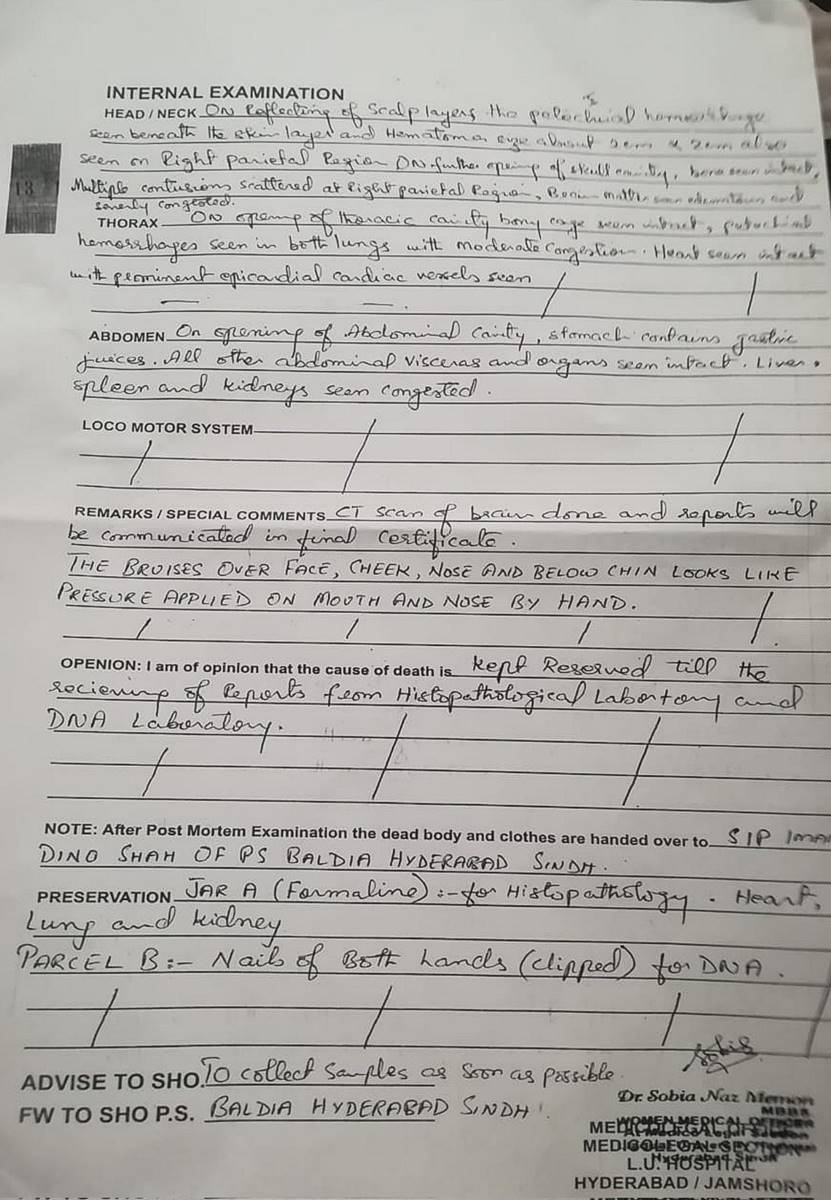 INTERNAL EXAMINATION
HEAD / NECK ON Reflecting of Scalp layers the petechial hemorrhage
seen beneath the skin layer and Hematoma size almost 2cm x 2cm also
seen on Right parietal Region ON further opening of skull cavity, bone seen intact,
Multiple contusions scattered at Right parietal Region, Brain matter seen edematous and
severly congested.
13
THORAX ON opening of thoracic cavity bony cage seen intact, petechial
hemorrhages seen in both lungs with moderate congestion. Heart seen intact
with prominent epicardial cardiac vessels seen
ABDOMEN On opening of Abdominal Cavity, stomach contains gastric
juices. All other abdominal visceras and organs seen intact. Liver,
spleen and kidneys seen congested.
LOCO MOTOR SYSTEM
REMARKS / SPECIAL COMMENTS CT scan of brain done and reports will
be communicated in final Certificate.
THE BRUISES OVER FACE, CHEEK, NOSE AND BELOW CHIN LOOKS LIKE
PRESSURE APPLIED ON MOUTH AND NOSE BY HAND.
OPENION: I am of opinion that the cause of death is kept Reserved till the
recieving of Reports from Histopathological Labortory and
DNA Laboratory.
NOTE: After Post Mortem Examination the dead body and clothes are handed over to SIP
DINO SHAH OF PS BALDIA HYDERABAD SINDH.
PRESERVATION JAR A (Formaline):- for Histopathology. Heart,
Lung and kidney
PARCEL B:- Nails of Both hands (clipped) for DNA.
ADVISE TO SHO. To collect Samples as Soon as possible.
FW TO SHO P.S. BALDIA HYDERABAD SINDH
Dr. Sobia Naz Memon
MBBS
WOMEN MEDICAL OFFICER
MEDICOLEGAL SECTION
L.U. HOSPITAL
HYDERABAD / JAMSHORO